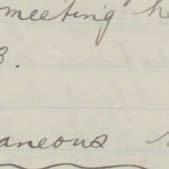 meeting he
3.
aneous